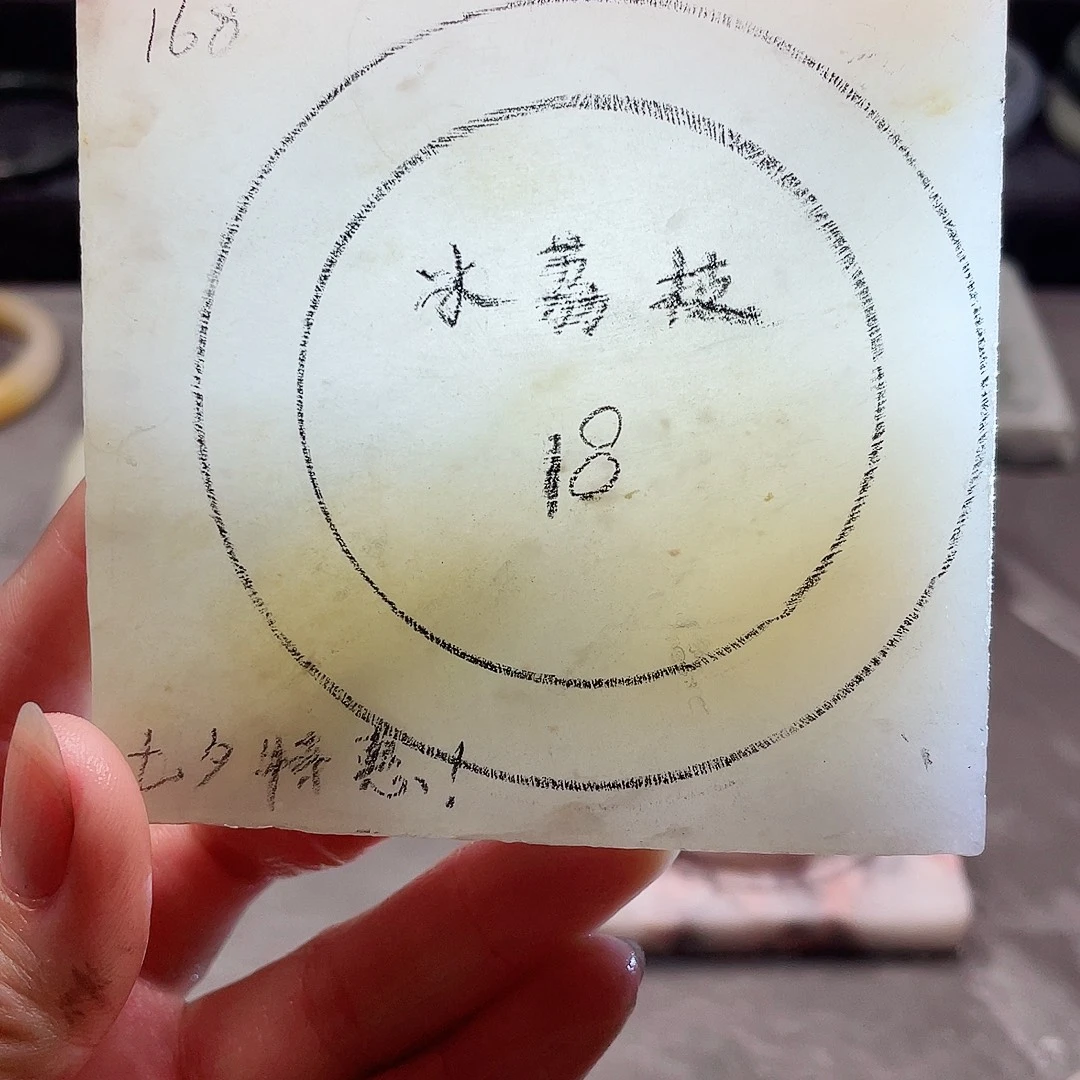 168
冰荔枝
18
七夕特惠!